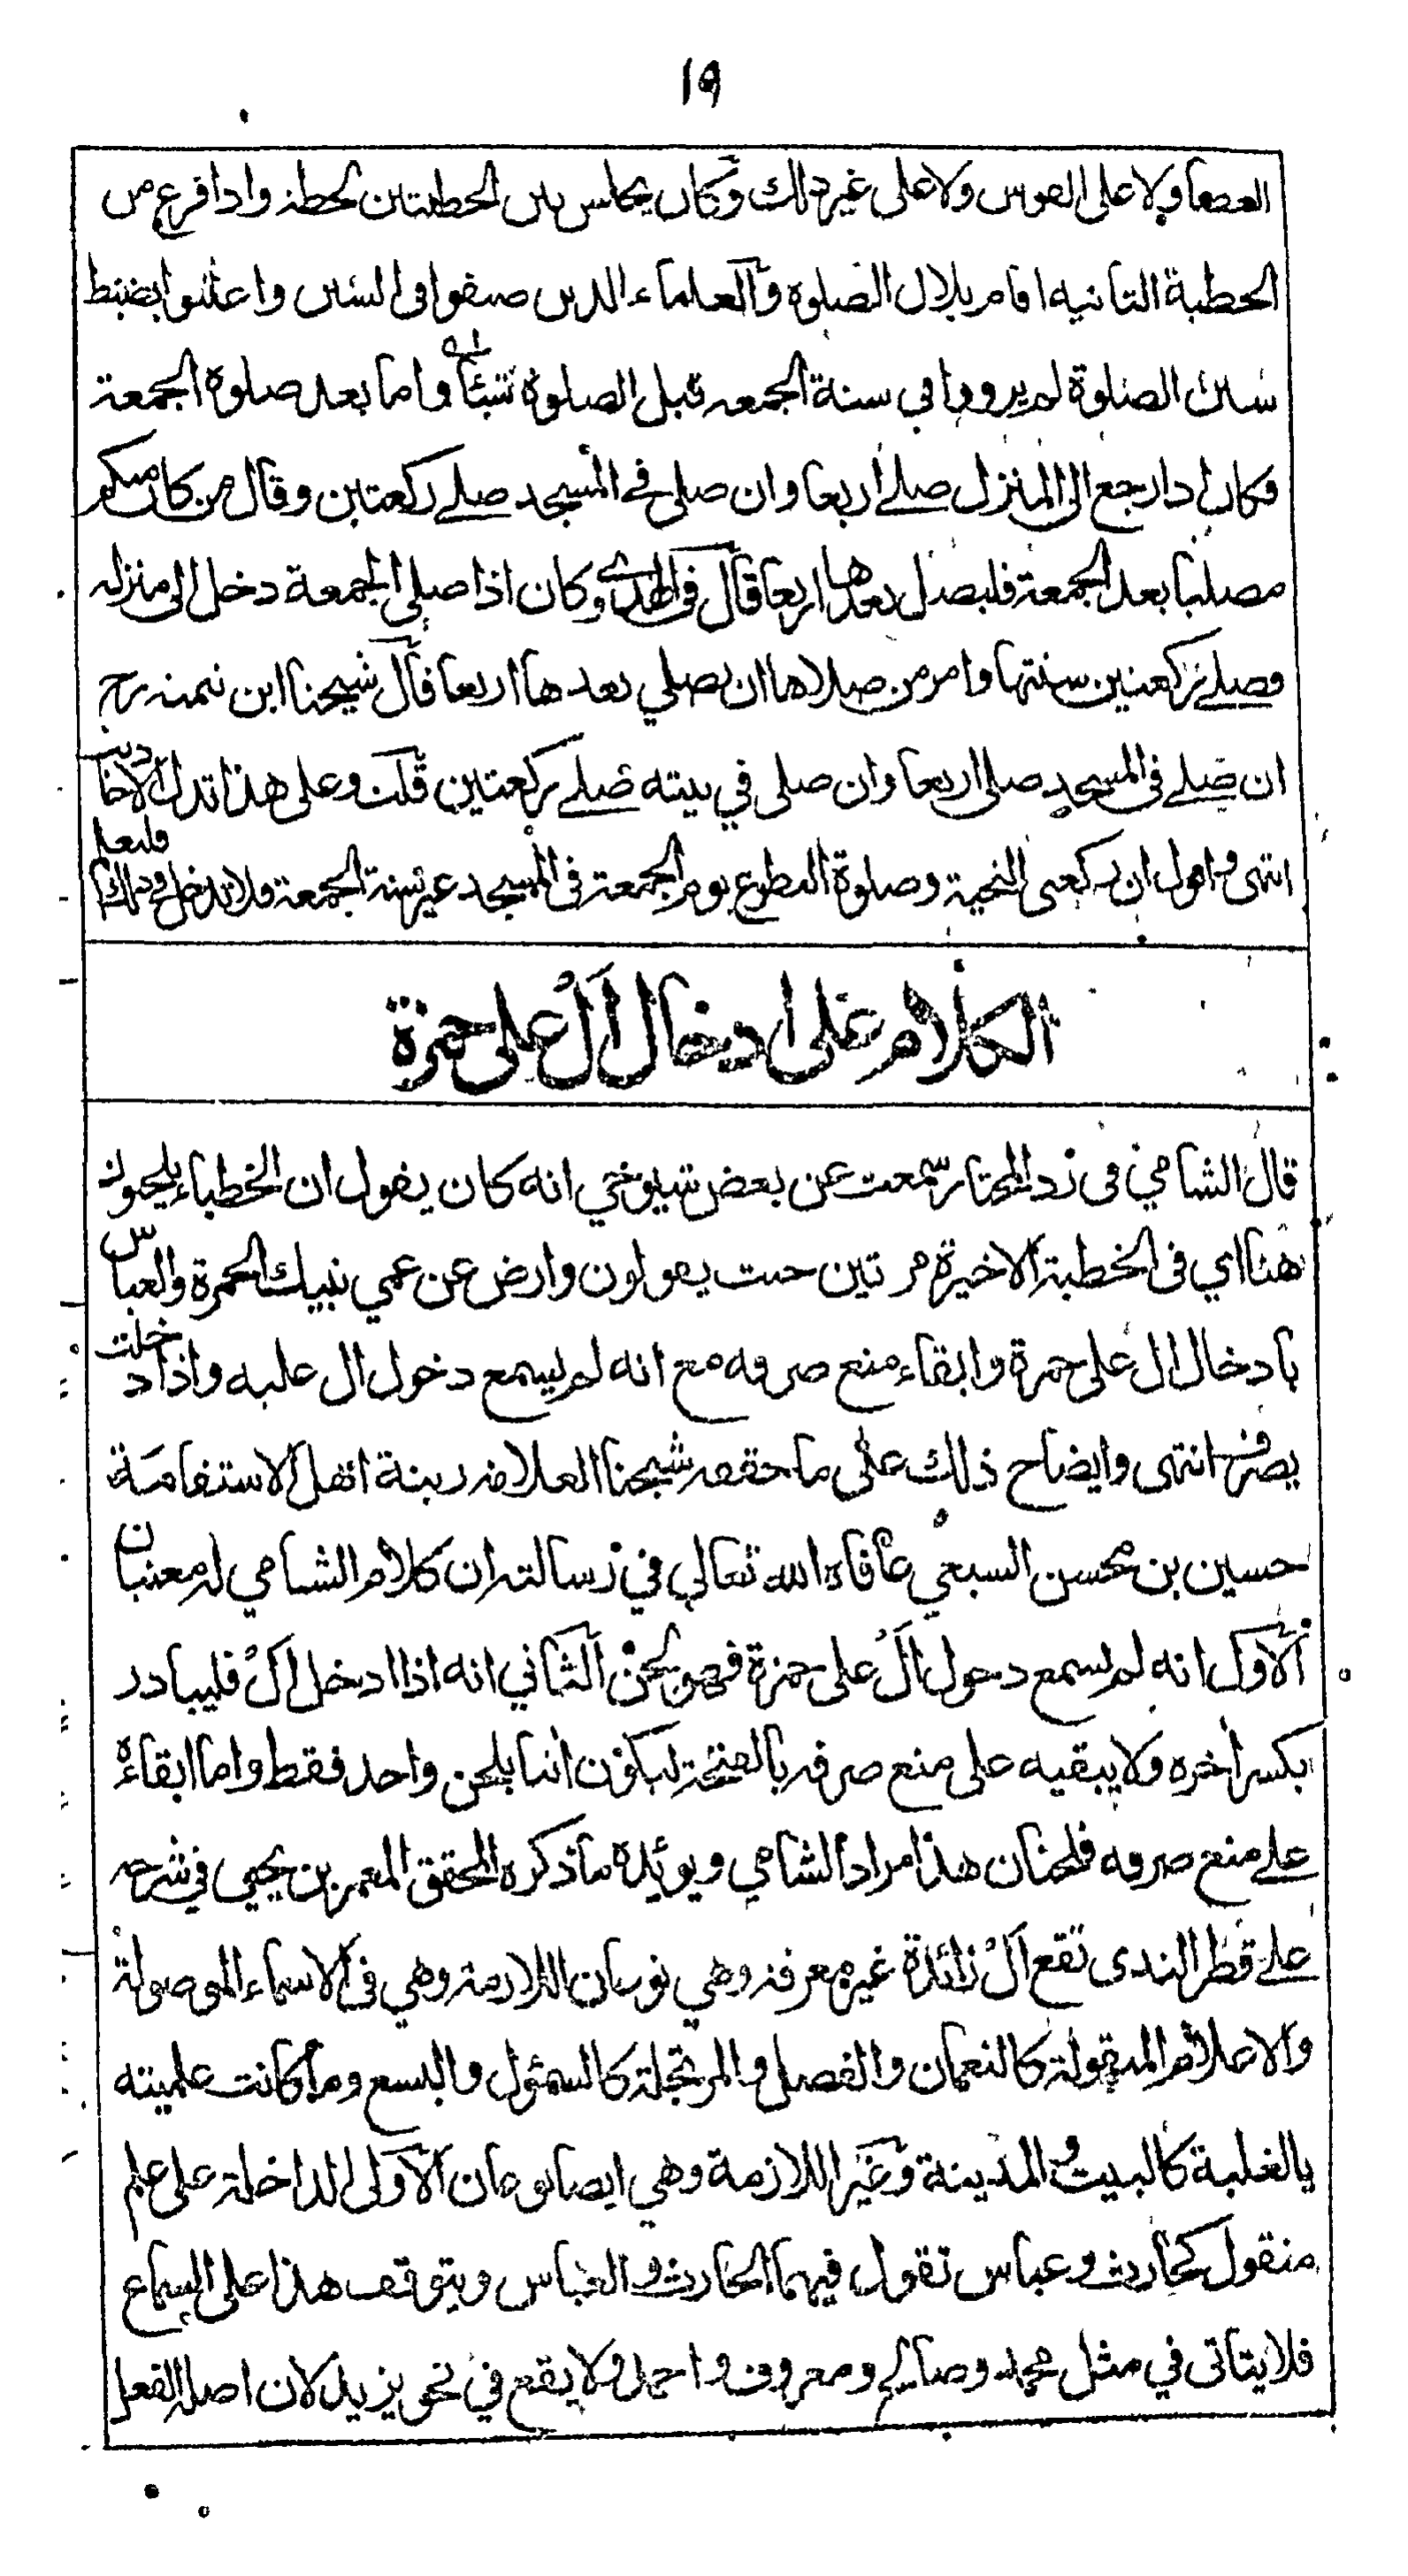 ١٩
العصا ولا على القوس ولا على غير ذلك وكان يجلس بين الخطبتين لحظة واذا فرغ من
الخطبة الثانية اقام بلال الصلوة والعلماء الذين صنفوا فى السنن واعتنوا بضبط
سنن الصلوة لم يرووا في سنة الجمعه قبل الصلوة شيئا واما بعد صلوة الجمعة
فكان اذا رجع الى المنزل صلے اربعا وان صلى فے المسجد صلے ركعتين وقال من كان منكم
مصليا بعد الجمعة فليصل بعدها اربعا قال فى الهدے وكان اذا صلى الجمعة دخل الى منزله
فصلے ركعتين سنتها وامر من صلاها ان يصلي بعدها اربعا قال شيخنا ابن تيمية رح
ان صلے فى المسجد صلى اربعا وان صلى في بيته صلے ركعتين قلت وعلى هذا تدل الاحاديث
انتهى واقول ان ركعتى التحية وصلوة التطوع يوم الجمعة فى المسجد غير سنة الجمعة فلا تدخل فى ذلك فليعلم
الكلام على ادخال ال على حمزة
قال الشامي فى رد المحتار سمعت عن بعض شيوخي انه كان يقول ان الخطباء يلحنون
هنا اي فى الخطبة الاخيرة مرتين حيث يقولون وارض عن عمي نبيك الحمزة والعباس
بادخال ال على حمزة وابقاء منع صرفه مع انه لم يسمع دخول ال عليه واذا دخلت
يصرف انتهى وايضاح ذلك على ما حققه شيخنا العلامة زينة اهل الاستقامة
حسين بن محسن السبعي عافاه الله تعالى في رسالته ان كلام الشامي له معنيان
الاول انه لم يسمع دخول ال على حمزة فهو لحن الثاني انه اذا ادخل ال فليبادر
بكسر أخره ولا يبقيه على منع صرفه بالفتحة ليكون اتيا بلحن واحد فقط واما ابقاءه
علے منع صرفه فلحنان هذا مراد الشامي ويوئده ما ذكره المحقق المعمر بن يحيى في شرحه
علے قطر الندى تقع ال زائدة غير معرفة وهي نوعان اللازمة وهي فى الاسماء الموصولة
والاعلام المنقولة كالنعمان والفضل والمرتجلة كالسمئول واليسع وما كانت علميته
بالغلبة كالبيت والمدينة وغير اللازمة وهي ايضا نوعان الاولى الداخلة على علم
منقول كحارث وعباس تقول فيهما الحارث والعباس ويتوقف هذا على السماع
فلا يتاتى في مثل محمد وصالح ومعروف واحمد ولا يقع في نحو يزيد لان اصله الفعل